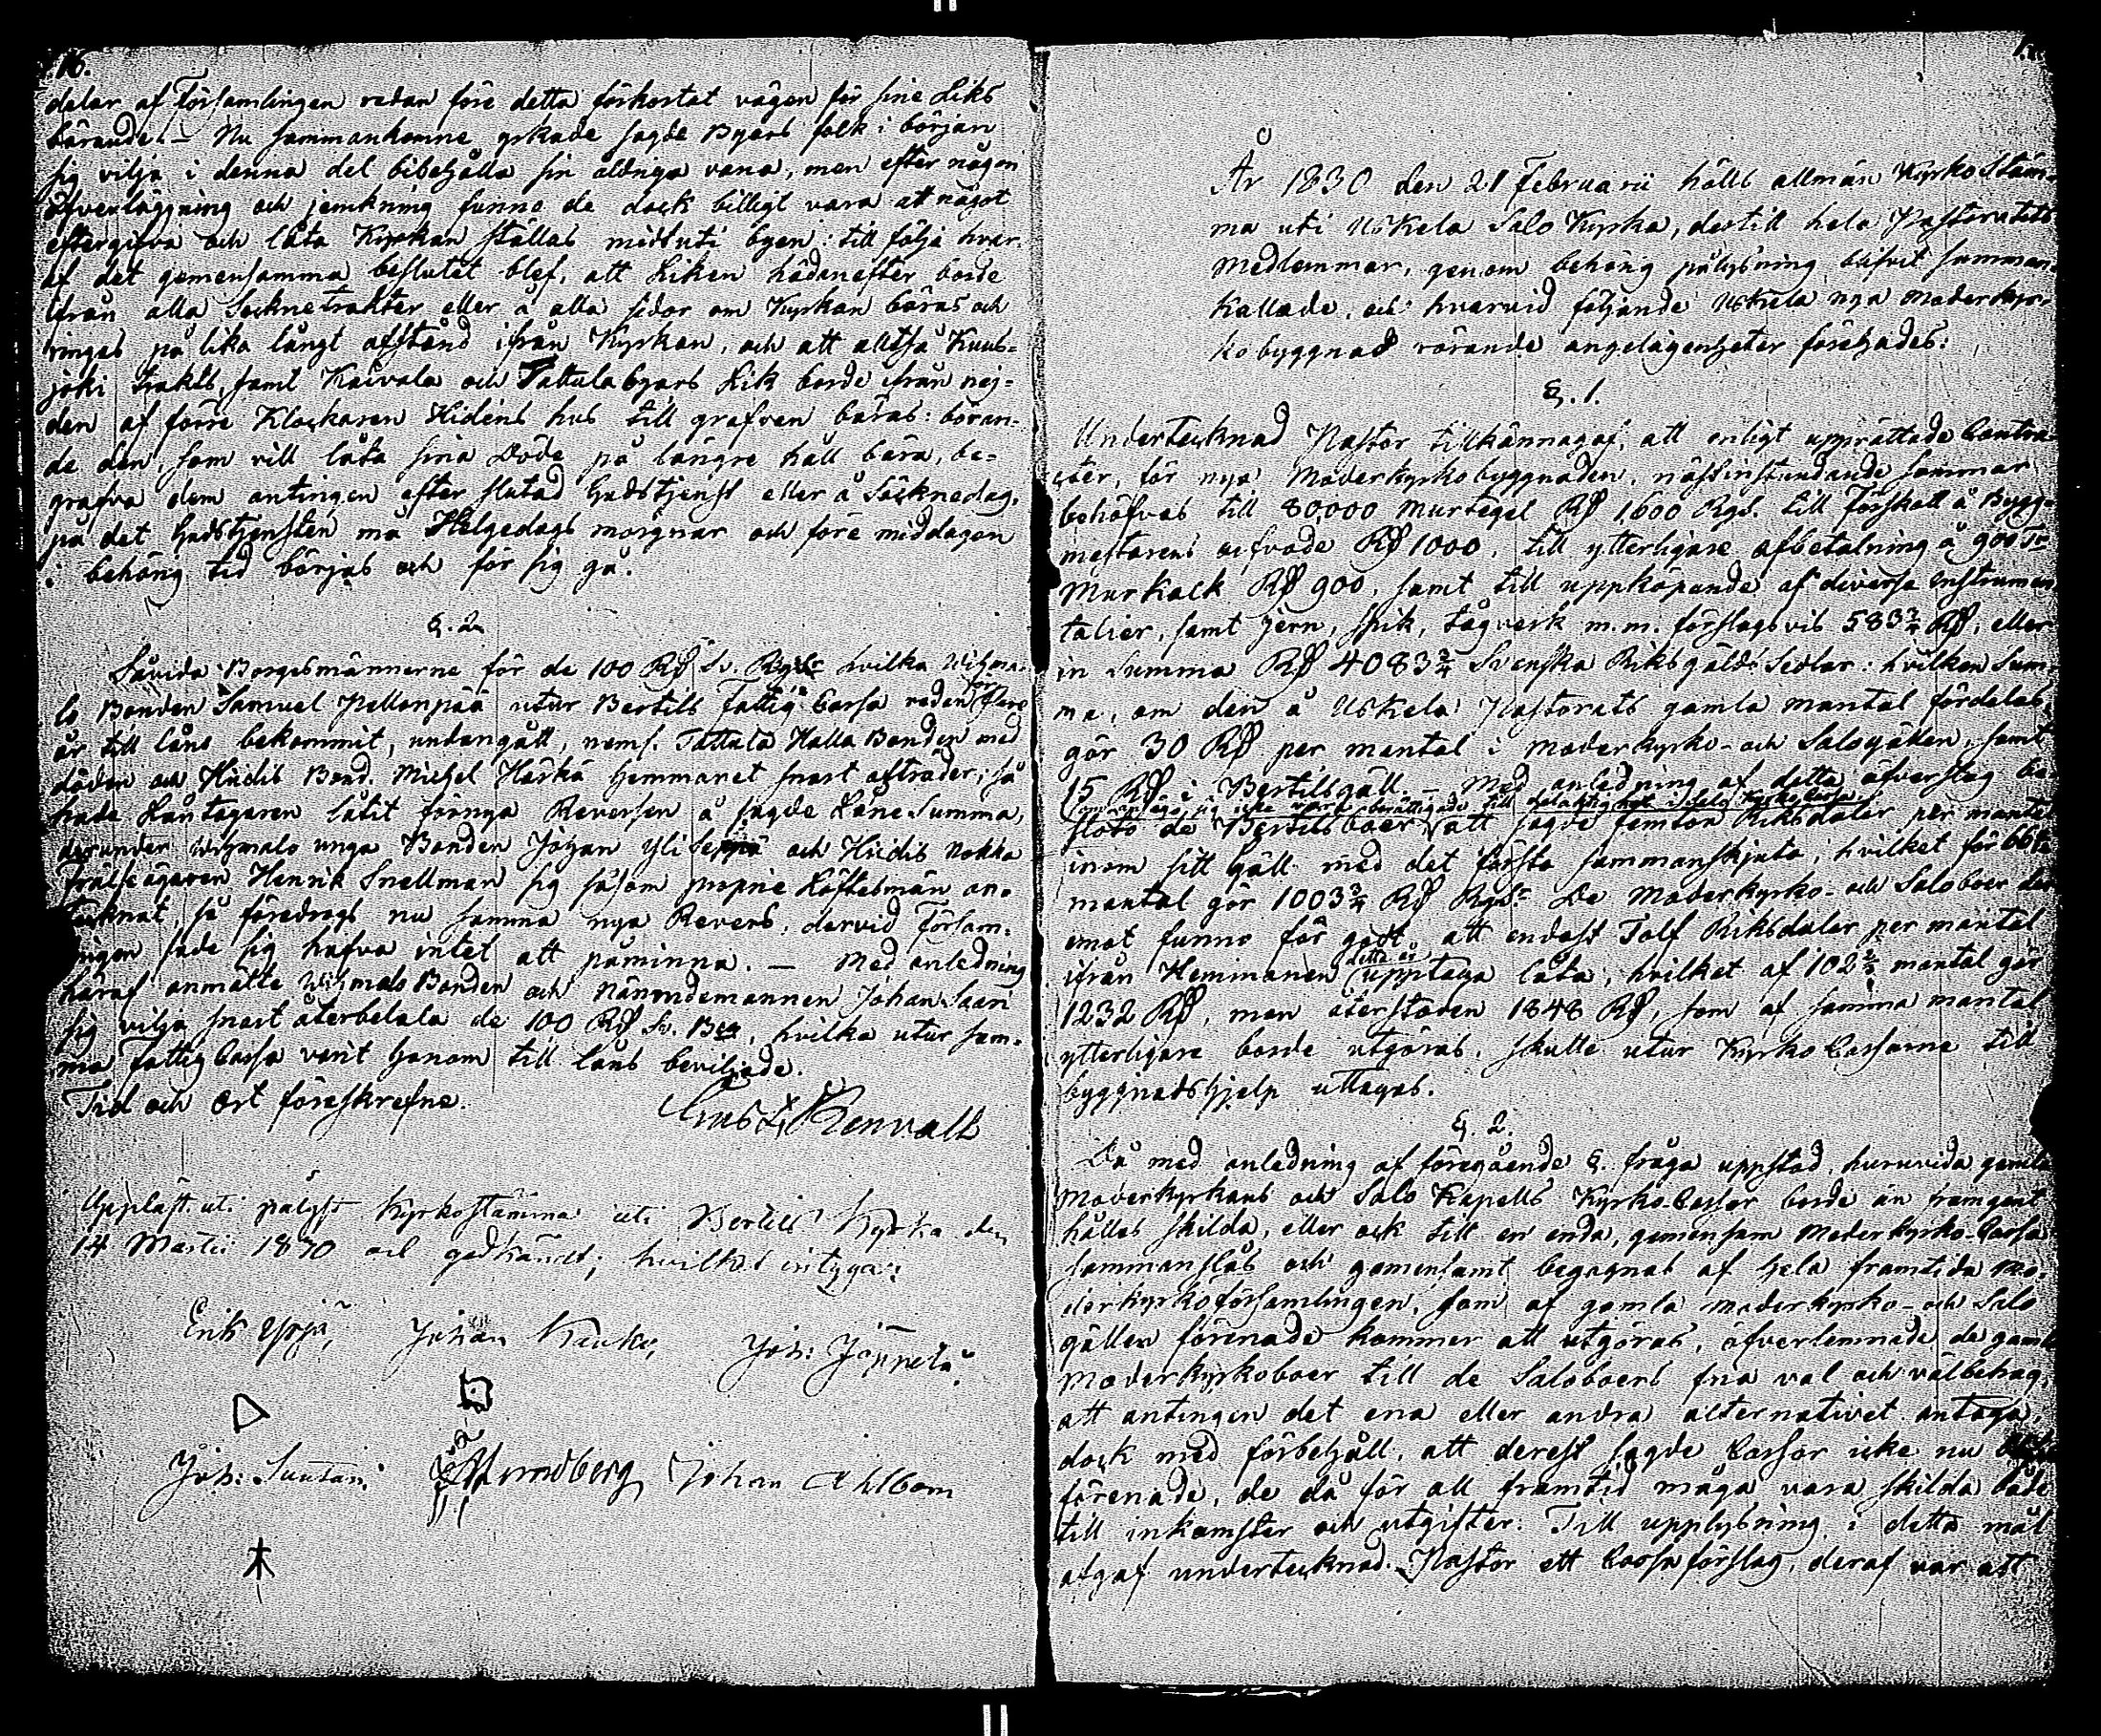 16.
delar af Församlingen redan före detta förkortat vägen för sine Liks
bärande. – Nu sammankomne yrkade sagde Byars folk i början
sig vilja i denna del bibehålla sin åldriga vana, men efter någon
öfverläggning och jemkning funno de dock billigt vara att något
eftergifva och låta Kyrkan ställas midtuti byen: till följe hvar-
af det gemensamma beslutet blef, att Liken hädanefter borde
ifrån alla Sockne trakter eller å alla sidor om Kyrkan bäras och
ringas på lika långt afstånd ifrån Kyrkan, och att alltså Kuus-
joki trakts, samt Kaivola och Tattula byars Lik borde ifrån nej-
den af förre Klockaren Hidéns hus till grafven bäras: böran-
de den, som vill låta sina Döde på längre håll bära, be-
grafva dem antingen efter slutad Gudstjenst eller å Söcknedag,
på det Gudstjensten må Helgedags morgnar och före middagen
i behörig tid börjas och för sig gå.
§. 2
Såvida Borgesmännerne för de 100 Rd Sv. Rgdr hvilka Wihma-
lo Bonden Samuel Pellonpää utur Bertils Fattig Cassa redan för flere
år till låns bekommit, undangått, neml. Tattula Halla Bonden med
döden och Hiidis Bond. Michel Härkä Hemmanet snart afträder, så
hade Låntagaren låtit förnya Reversen å sagde Låne Summa,
derunder Wihmalo unga Bonden Johan Yli Seppä och Hiidis Nokka
Frälse ägaren Henrik Snellman sig såsom proprie Löftesmän an-
tecknat, så föredrogs nu samma nya Revers, dervid Försam-
lingen sade sig hafva intet att påminna. – Med anledning
häraf anmälte Wihmalo Bonden och Nämndemannen Johan Saari
sig vilja snart återbetala de 100 Rd Sv. Bco, hvilka utur sam-
ma Fattig Cassa varit honom till låns beviljade.
Tid och Ort föreskrefne.
Gust. Renvall
Uppläst uti pålyst Kyrkostämma uti Bertils Kyrka den
14 Martii 1830 och godkändt; hvilket intyga:
Erik Yrjä, Johan Kauko, Joh: Jöppelä.
Joh: Suutari Lundberg Johan Ahlbom
År 1830 den 21 Februarii hölls allmän Kyrko Stäm-
ma uti Uskela Salo Kyrka, dertill hela Pastoratets
Medlemmar, genom behörig pålysning blifvit samman-
kallade, och hvarvid följande Uskela nya Moderkyr-
kobyggnad rörande angelägenheter förehades:
§. 1.
Undertecknad Pastor tillkännagaf, att enligt upprättade Contra-
cter, för nya Moderkyrkobyggnaden, nästinstundande sommar
behöfves till 80,000 Murtegel Rd 1,600 Rgd. till Förskott å Bygg-
mestarens arfvode Rd 1000, till ytterligare afbetalning å 900 Tr
Murkalk Rd 900, samt till uppköpande af diverse Instrumen-
talier, samt jern, spik, tågverk m.m. förslagsvis 583 3/4 Rd, eller
in Summa Rd 4083 3/4 Svenska Riksgälds Sedlar: hvilken Sum-
ma, om den å Uskela Pastorats gamla mantal fördelas,
gör 30 Rd per mantal i moderkyrko- och Salogällen, samt
15 Rd i Bertilsgäll. – Med anledning af detta öfverslag be-
slöto de Bertilsboer, att sagde femton Riksdaler per mantal
inom sitt gäll med det första sammanskjuta; hvilket för
mantal gör 1003 3/4 Rd Rgs. De Moderkyrko- och Saloboer der-
emot funno för godt att endast Tolf Riksdaler per mantal
ifrån Hemmanen detta år upptaga låta, hvilket af 102 2/3 mantal gör
1232 Rd, men återstoden 1848 Rd, som af samma mantal
ytterligare borde utgöras, skulle utur Kyrko Cassorne till
byggnadshjelp uttagas.
§. 2.
Då med anledning af föregående §. fråga uppstod, huruvida gamla
Moderkyrkans och Salo Kapells Kyrko-Cassor borde än framgent
hållas skilda, eller ock till en enda, gemensam Moderkyrko-Cassa
sammanslås och gemensamt begagnas af hela framtida Mo-
derkyrkoförsamlingen, som af gamla moderkyrko- och Salo
gällen förenade kommer att utgöras, öfverlemnade de gamla
Moderkyrkoboer till de Saloboers fria val och välbehag,
att antingen det ena eller andra alternativet antaga,
dock med förbehåll, att derest sagde Cassor icke nu
förenade, de då för all framtid måga vara skilda både
till inkomster och utgifter. Till upplysning i detta mål
afgaf undertecknad Pastor ett Cassaförslag, deraf var att